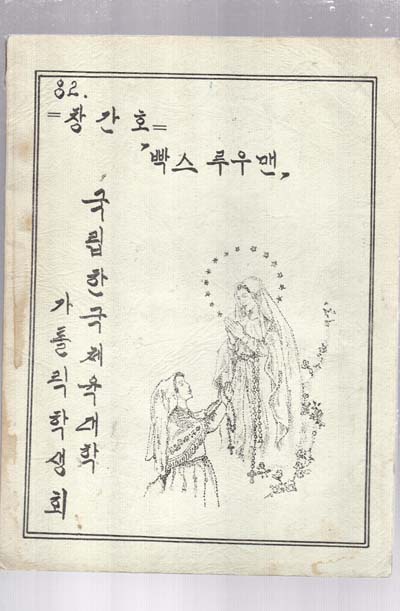 82.
=창간호=
"빡스루우맨"
국립한국체육대학
가톨릭학생회